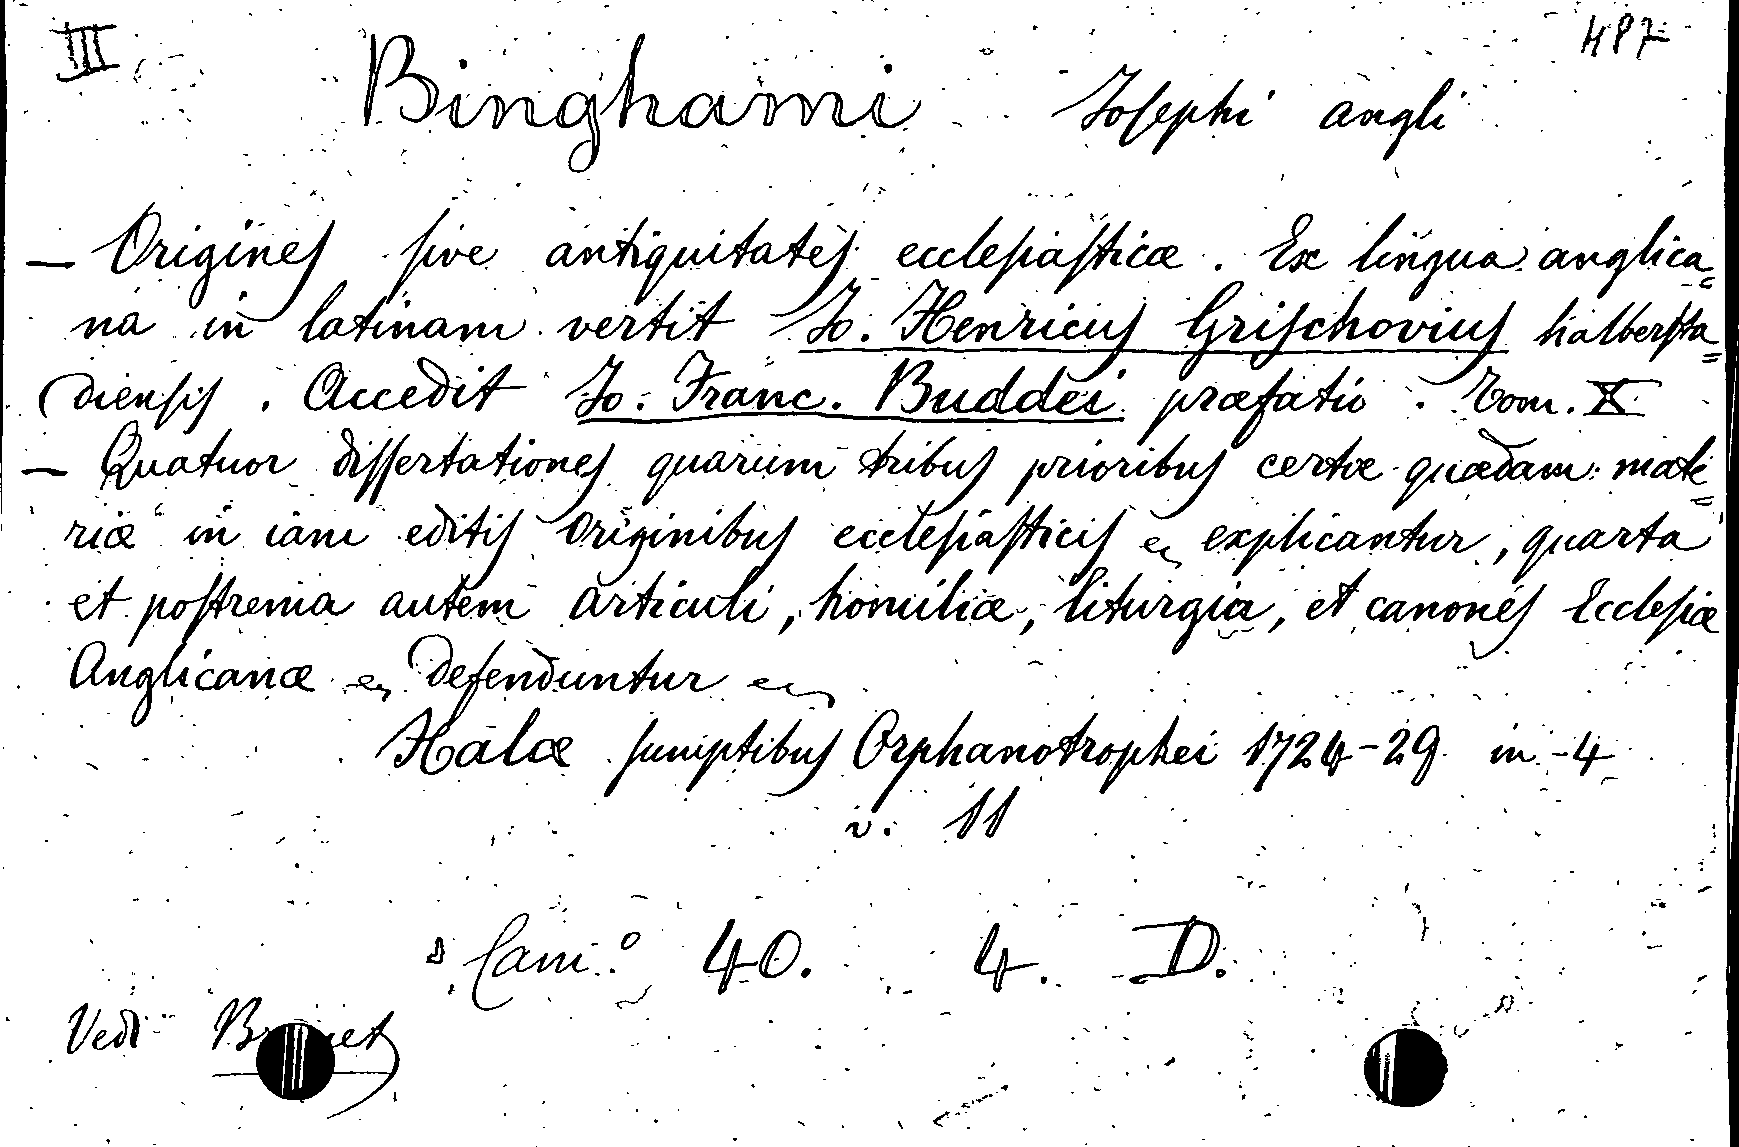 III 487
Binghami Josephi angli
— Origines sive antiquitates ecclesiasticæ. Ex lingua anglica=
na in latinam vertit Jo. Henricus Grischovius halbersta=
diensis. Accedit Jo. Franc. Buddei præfatio. Tom. X
— Quatuor dissertationes quarum tribus prioribus certæ quædam mate=
riæ in iam editis Originibus ecclesiasticis explicantur, quarta
et postrema autem articuli, homiliæ, liturgia, et canones Ecclesiæ
Anglicanæ defenduntur
Halæ sumptibus Orphanotrophei 1724-29 in-4
v. 11
Cam.º 40. 4. D.
Vedi